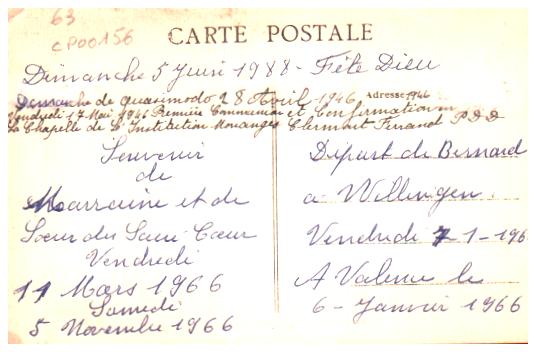 63
CP00156
CARTE POSTALE
Dimanche 5 Juin 1988 - Fête Dieu
Dimanche de quasimodo 28 Avril 1946
Adresse
Vendredi 17 Mai 1946 Première Communion et Confirmation
La Chapelle de L'Institution Monanges Clermont Ferrand P D D
Souvenir
de
Marraine et de
Sœur du Sacré Cœur
Vendredi
11 Mars 1966
Samedi
5 Novembre 1966
Départ de Bernard
a Willingen
Vendredi 7 1-196
A Valence le
6 - Janvier 1966